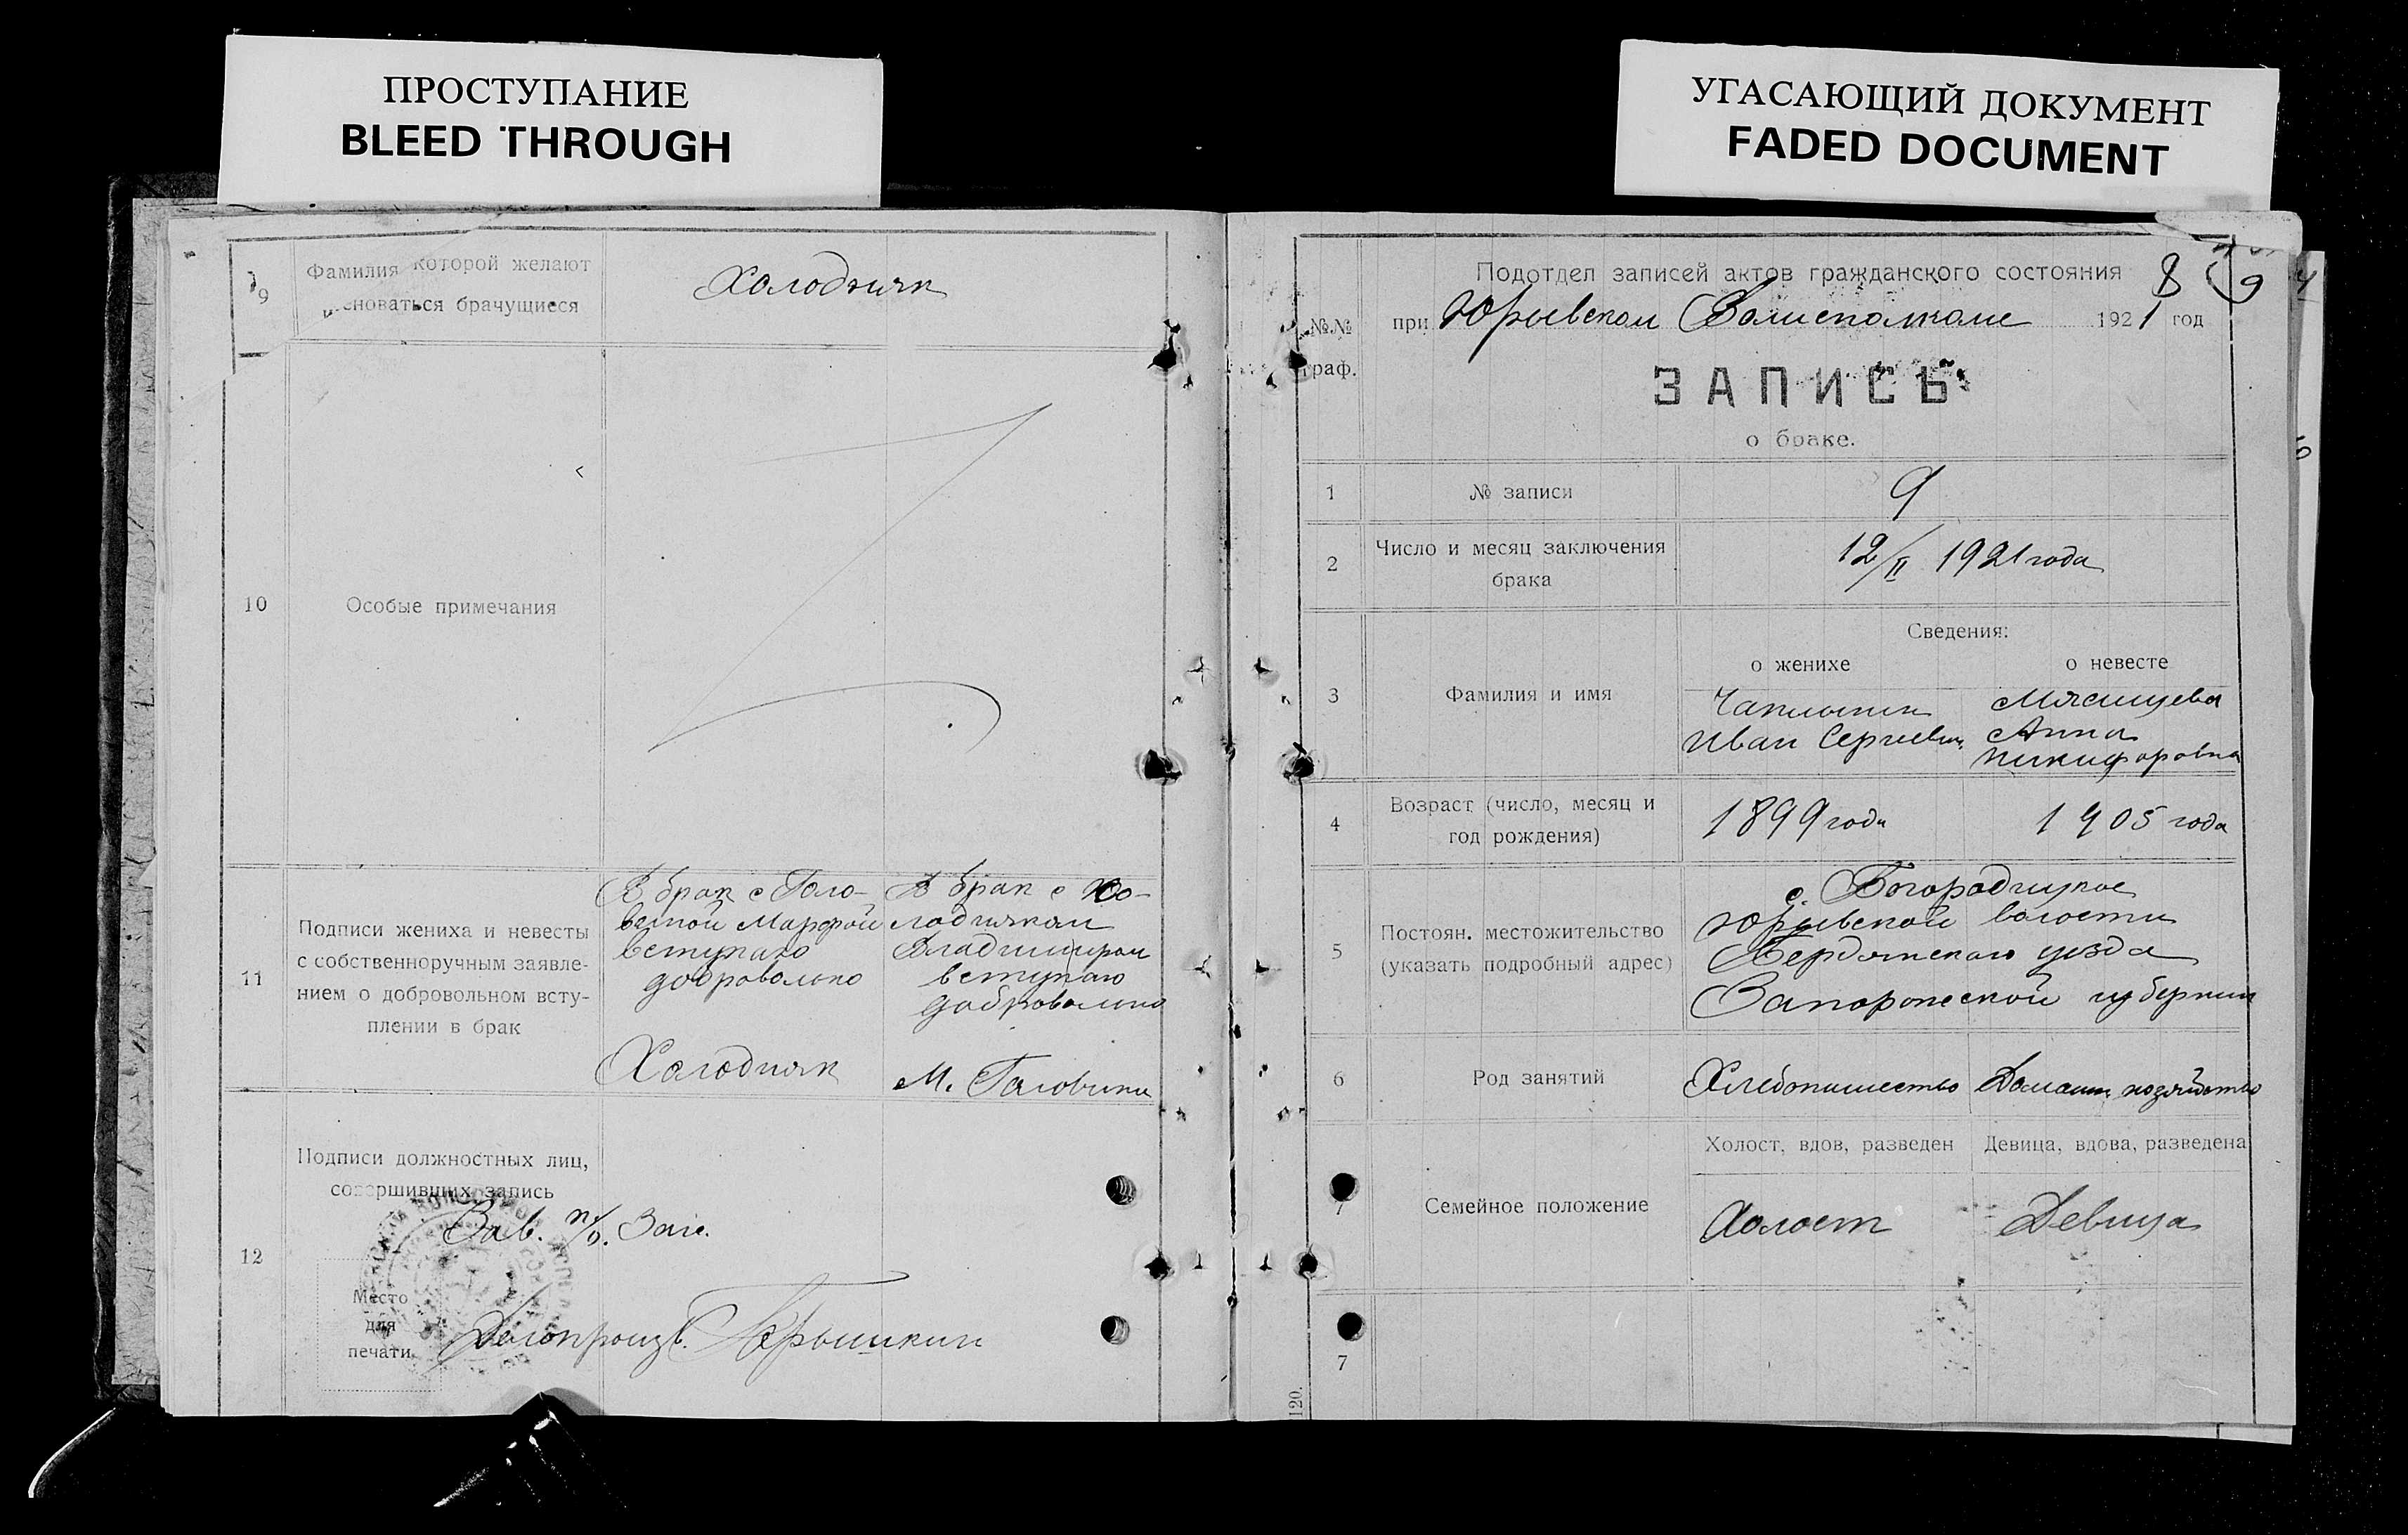 ПРОСТУПАНИЕ
BLEED THROUGH
УГАСАЮЩИЙ ДОКУМЕНТ
FADED DOCUMENT
9
Фамилия которой желают
именоваться брачущиеся
Холодняк
10
Особые примечания
11
Подписи жениха и невесты
с собственноручным заявле-
нием о добровольном всту-
плении в брак
В брак с Голо-
виной Марфой
вступаю
добровольно
Холодняк
В брак с Хо-
лодняком
Владимиром
вступаю
добровольно
М. Головина
12
Подписи должностных лиц,
совершивших запись
Зав. п/о. Загс.
Место
для
печати
Делопроизв.
№№
граф.
Подотдел записей актов гражданского состояния
8
9
при Юрьевском Волисполкоме 1921 год
ЗАПИСЬ
о браке.
1
№ записи
9
2
Число и месяц заключения
брака
12/II 1921 года
3
Фамилия и имя
Сведения:
о женихе
о невесте
Чаплыгин
Иван Сергиевич
Мясищева
Анна
Никифоровна
4
Возраст (число, месяц и
год рождения)
1899 года
1905 года
5
Постоян. местожительство
(указать подробный адрес)
с. Богородицкое
Юрьевской волости
Бердянскаго уезда
Запорожской губернии
6
Род занятий
Хлебопашество
Домашн. хозяйство
7
Семейное положение
Холост, вдов, разведен
Девица, вдова, разведена
Холост
Девица
7
120.